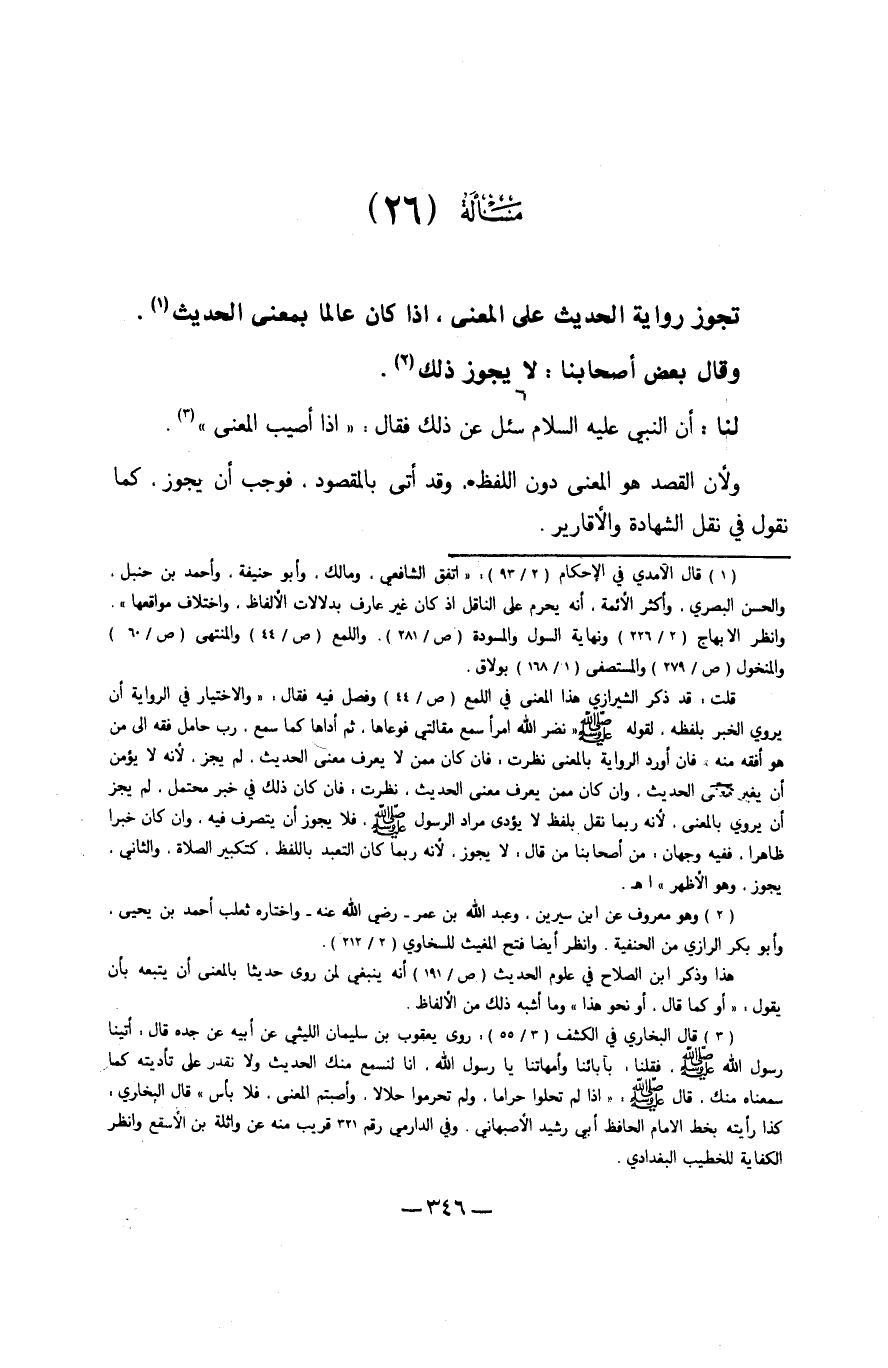 مسألة (٢٦)
تجوز رواية الحديث على المعنى ، اذا كان عالما بمعنى الحديث (١) .
وقال بعض أصحابنا : لا يجوز ذلك (٢) .
لنا : أن النبي عليه السلام سئل عن ذلك فقال : « اذا أصيب المعنى » (٣) .
ولأن القصد هو المعنى دون اللفظ ، وقد أتى بالمقصود ، فوجب أن يجوز ، كما
نقول في نقل الشهادة والأقارير .
( ١ ) قال الآمدي في الإحكام ( ٢ / ٩٣ ) : « اتفق الشافعي ، ومالك ، وأبو حنيفة ، وأحمد بن حنبل ،
والحسن البصري ، وأكثر الأئمة ، أنه يحرم على الناقل اذ كان غير عارف بدلالات الألفاظ ، واختلاف مواقعها » .
وانظر الابهاج ( ٢ / ٢٢٦ ) ونهاية السول والمسودة ( ص / ٢٨١ ) . واللمع ( ص / ٤٤ ) والمنتهى ( ص / ٦٠ )
والمنخول ( ص / ٢٧٩ ) والمستصفى ( ١ / ١٦٨ ) بولاق .
قلت : قد ذكر الشيرازي هذا المعنى في اللمع ( ص / ٤٤ ) وفصل فيه فقال : « والاختيار في الرواية أن
يروي الخبر بلفظه ، لقوله ﷺ « نضر الله امرأ سمع مقالتي فوعاها ، ثم أداها كما سمع ، رب حامل فقه الى من
هو أفقه منه » فان أورد الرواية بالمعنى نظرت : فان كان ممن لا يعرف معنى الحديث ، لم يجز ، لأنه لا يؤمن
أن يغير معنى الحديث ، وان كان ممن يعرف معنى الحديث ، نظرت : فان كان ذلك في خبر محتمل ، لم يجز
أن يروي بالمعنى ، لأنه ربما نقل بلفظ لا يؤدى مراد الرسول ﷺ ، فلا يجوز أن يتصرف فيه ، وان كان خبرا
ظاهرا ، ففيه وجهان : من أصحابنا من قال : لا يجوز ، لأنه ربما كان التعبد باللفظ ، كتكبير الصلاة ، والثاني ،
يجوز ، وهو الأظهر » ا هـ .
( ٢ ) وهو معروف عن ابن سيرين ، وعبد الله بن عمر ـ رضي الله عنه ـ واختاره ثعلب أحمد بن يحيى ،
وأبو بكر الرازي من الحنفية . وانظر أيضا فتح المغيث للسخاوي ( ٢ / ٢١٢ ) .
هذا وذكر ابن الصلاح في علوم الحديث ( ص / ١٩١ ) أنه ينبغي لمن روى حديثا بالمعنى أن يتبعه بأن
يقول : « أو كما قال ، أو نحو هذا » وما أشبه ذلك من الألفاظ .
( ٣ ) قال البخاري في الكشف ( ٣ / ٥٥ ) : روى يعقوب بن سليمان الليثي عن أبيه عن جده قال : أتينا
رسول الله ﷺ ، فقلنا : بآبائنا وأمهاتنا يا رسول الله ، انا لنسمع منك الحديث ولا نقدر على تأديته كما
سمعناه منك ، قال ﷺ : « اذا لم تحلوا حراما ، ولم تحرموا حلالا ، وأصبتم المعنى ، فلا بأس » قال البخاري :
كذا رأيته بخط الامام الحافظ أبي رشيد الأصبهاني . وفي الدارمي رقم ٣٢١ قريب منه عن واثلة بن الأسقع وانظر
الكفاية للخطيب البغدادي .
— ٣٤٦ —